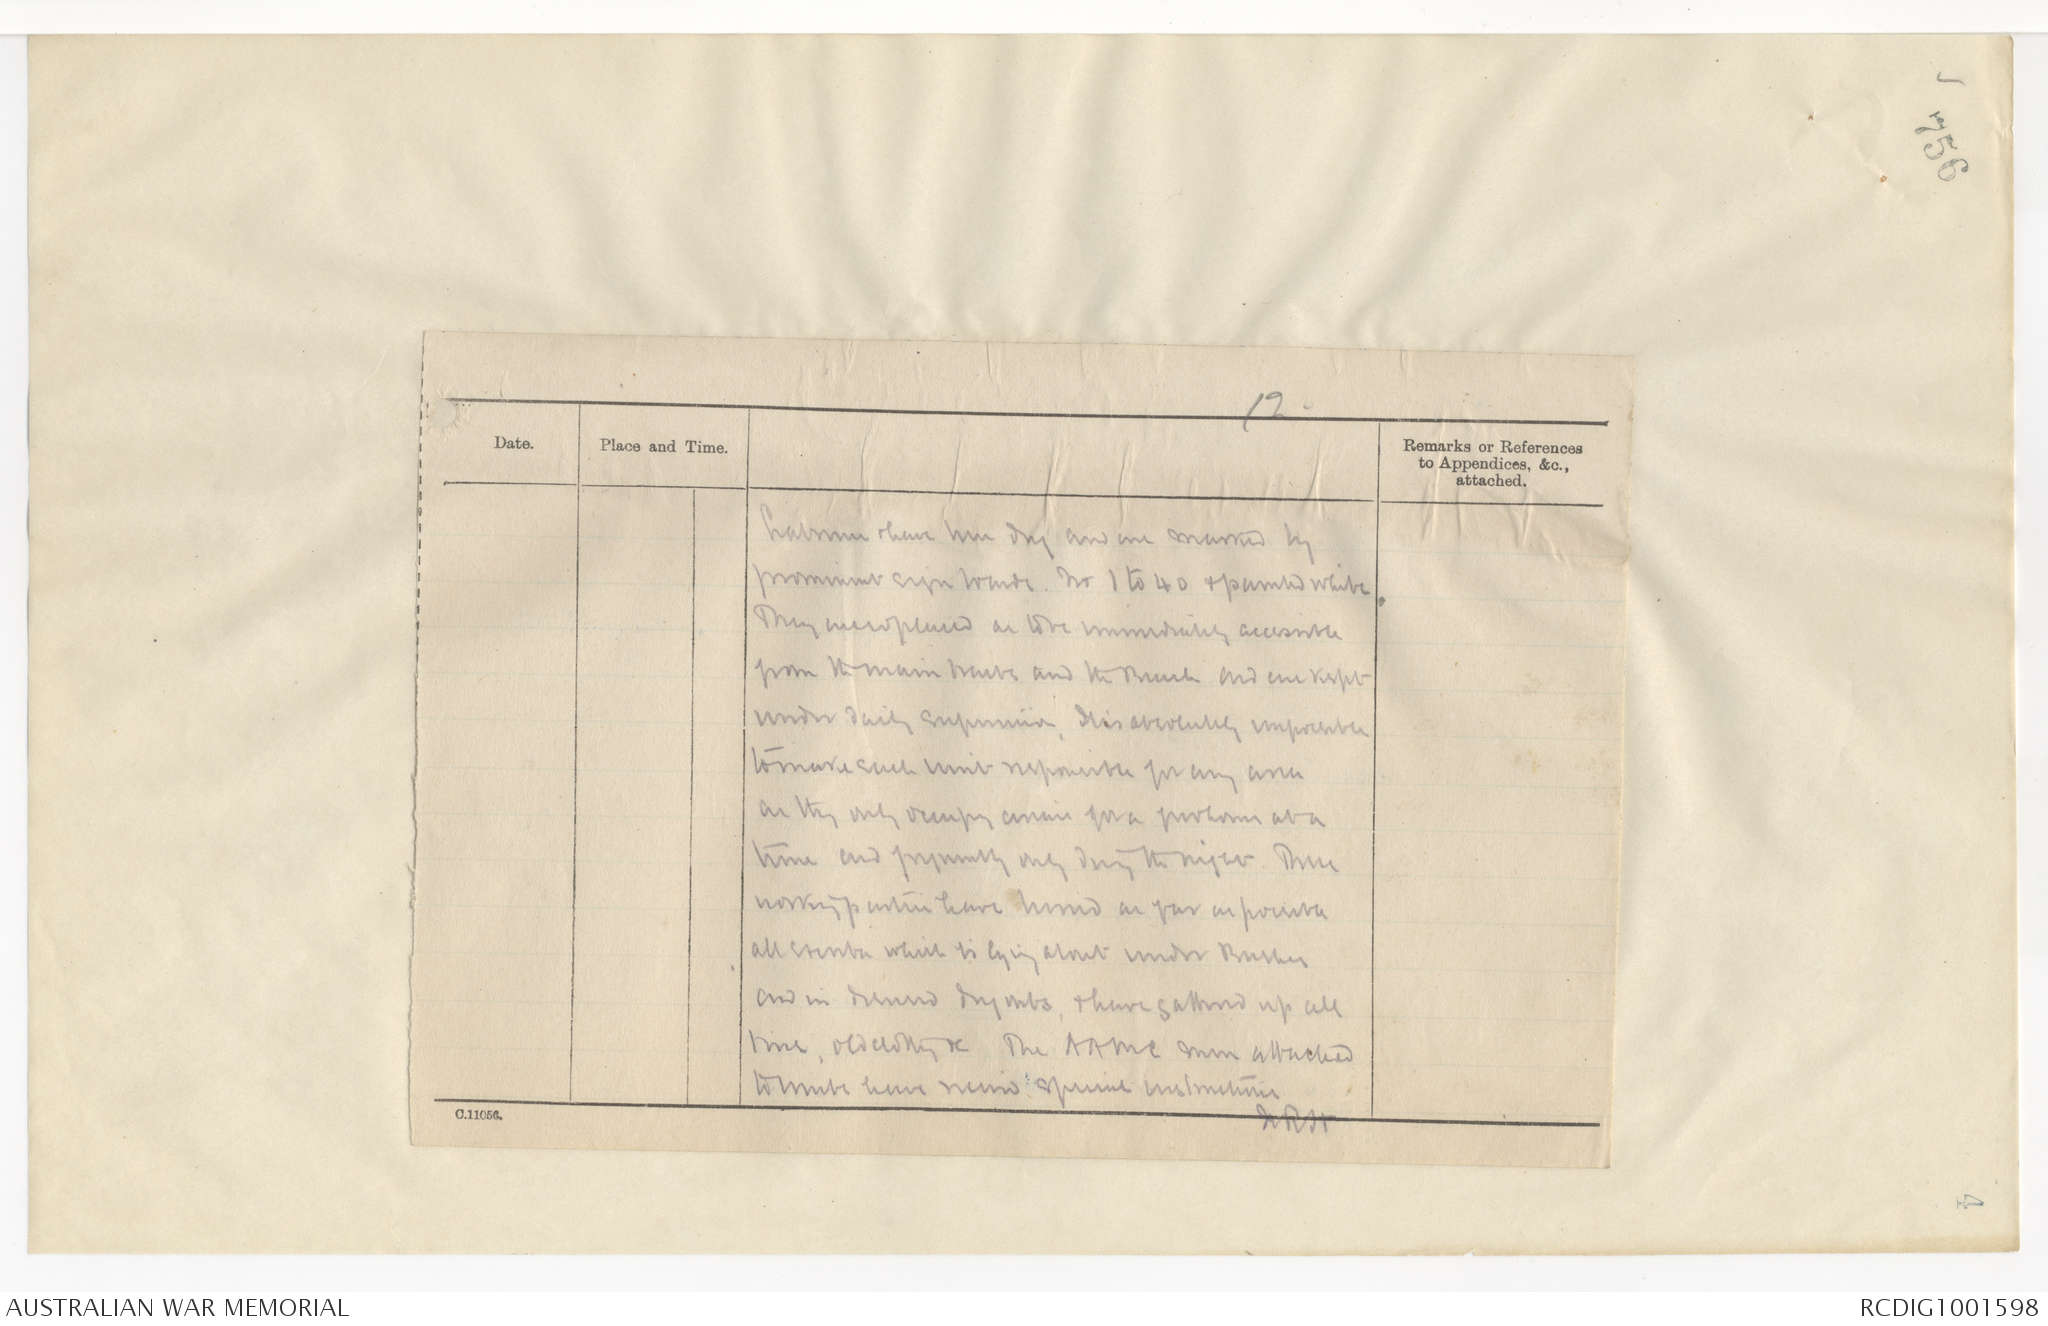 756
12
Date.
Place and Time.
Remarks or References
to Appendices, &c.,
attached.
Latrines have been dug and are marked by
prominent sign boards. No 1 to 40 & painted white
They are so placed as to be immediately accessible
from the main tracks and the Beach and are kept
under daily supervision, It is absolutely impossible
to make each unit responsible for any area
as they only occupy areas for a few hours at a
time and frequently only during the night. These
working parties have buried as far as possible
all which is lying about under Bushes
and in disused dug outs, & have gathered up all
tins, old clothing &c The AAMC men attached
to Units have received special instructions
C.11056.
4
AUSTRALIAN WAR MEMORIAL
RCDIG1001598